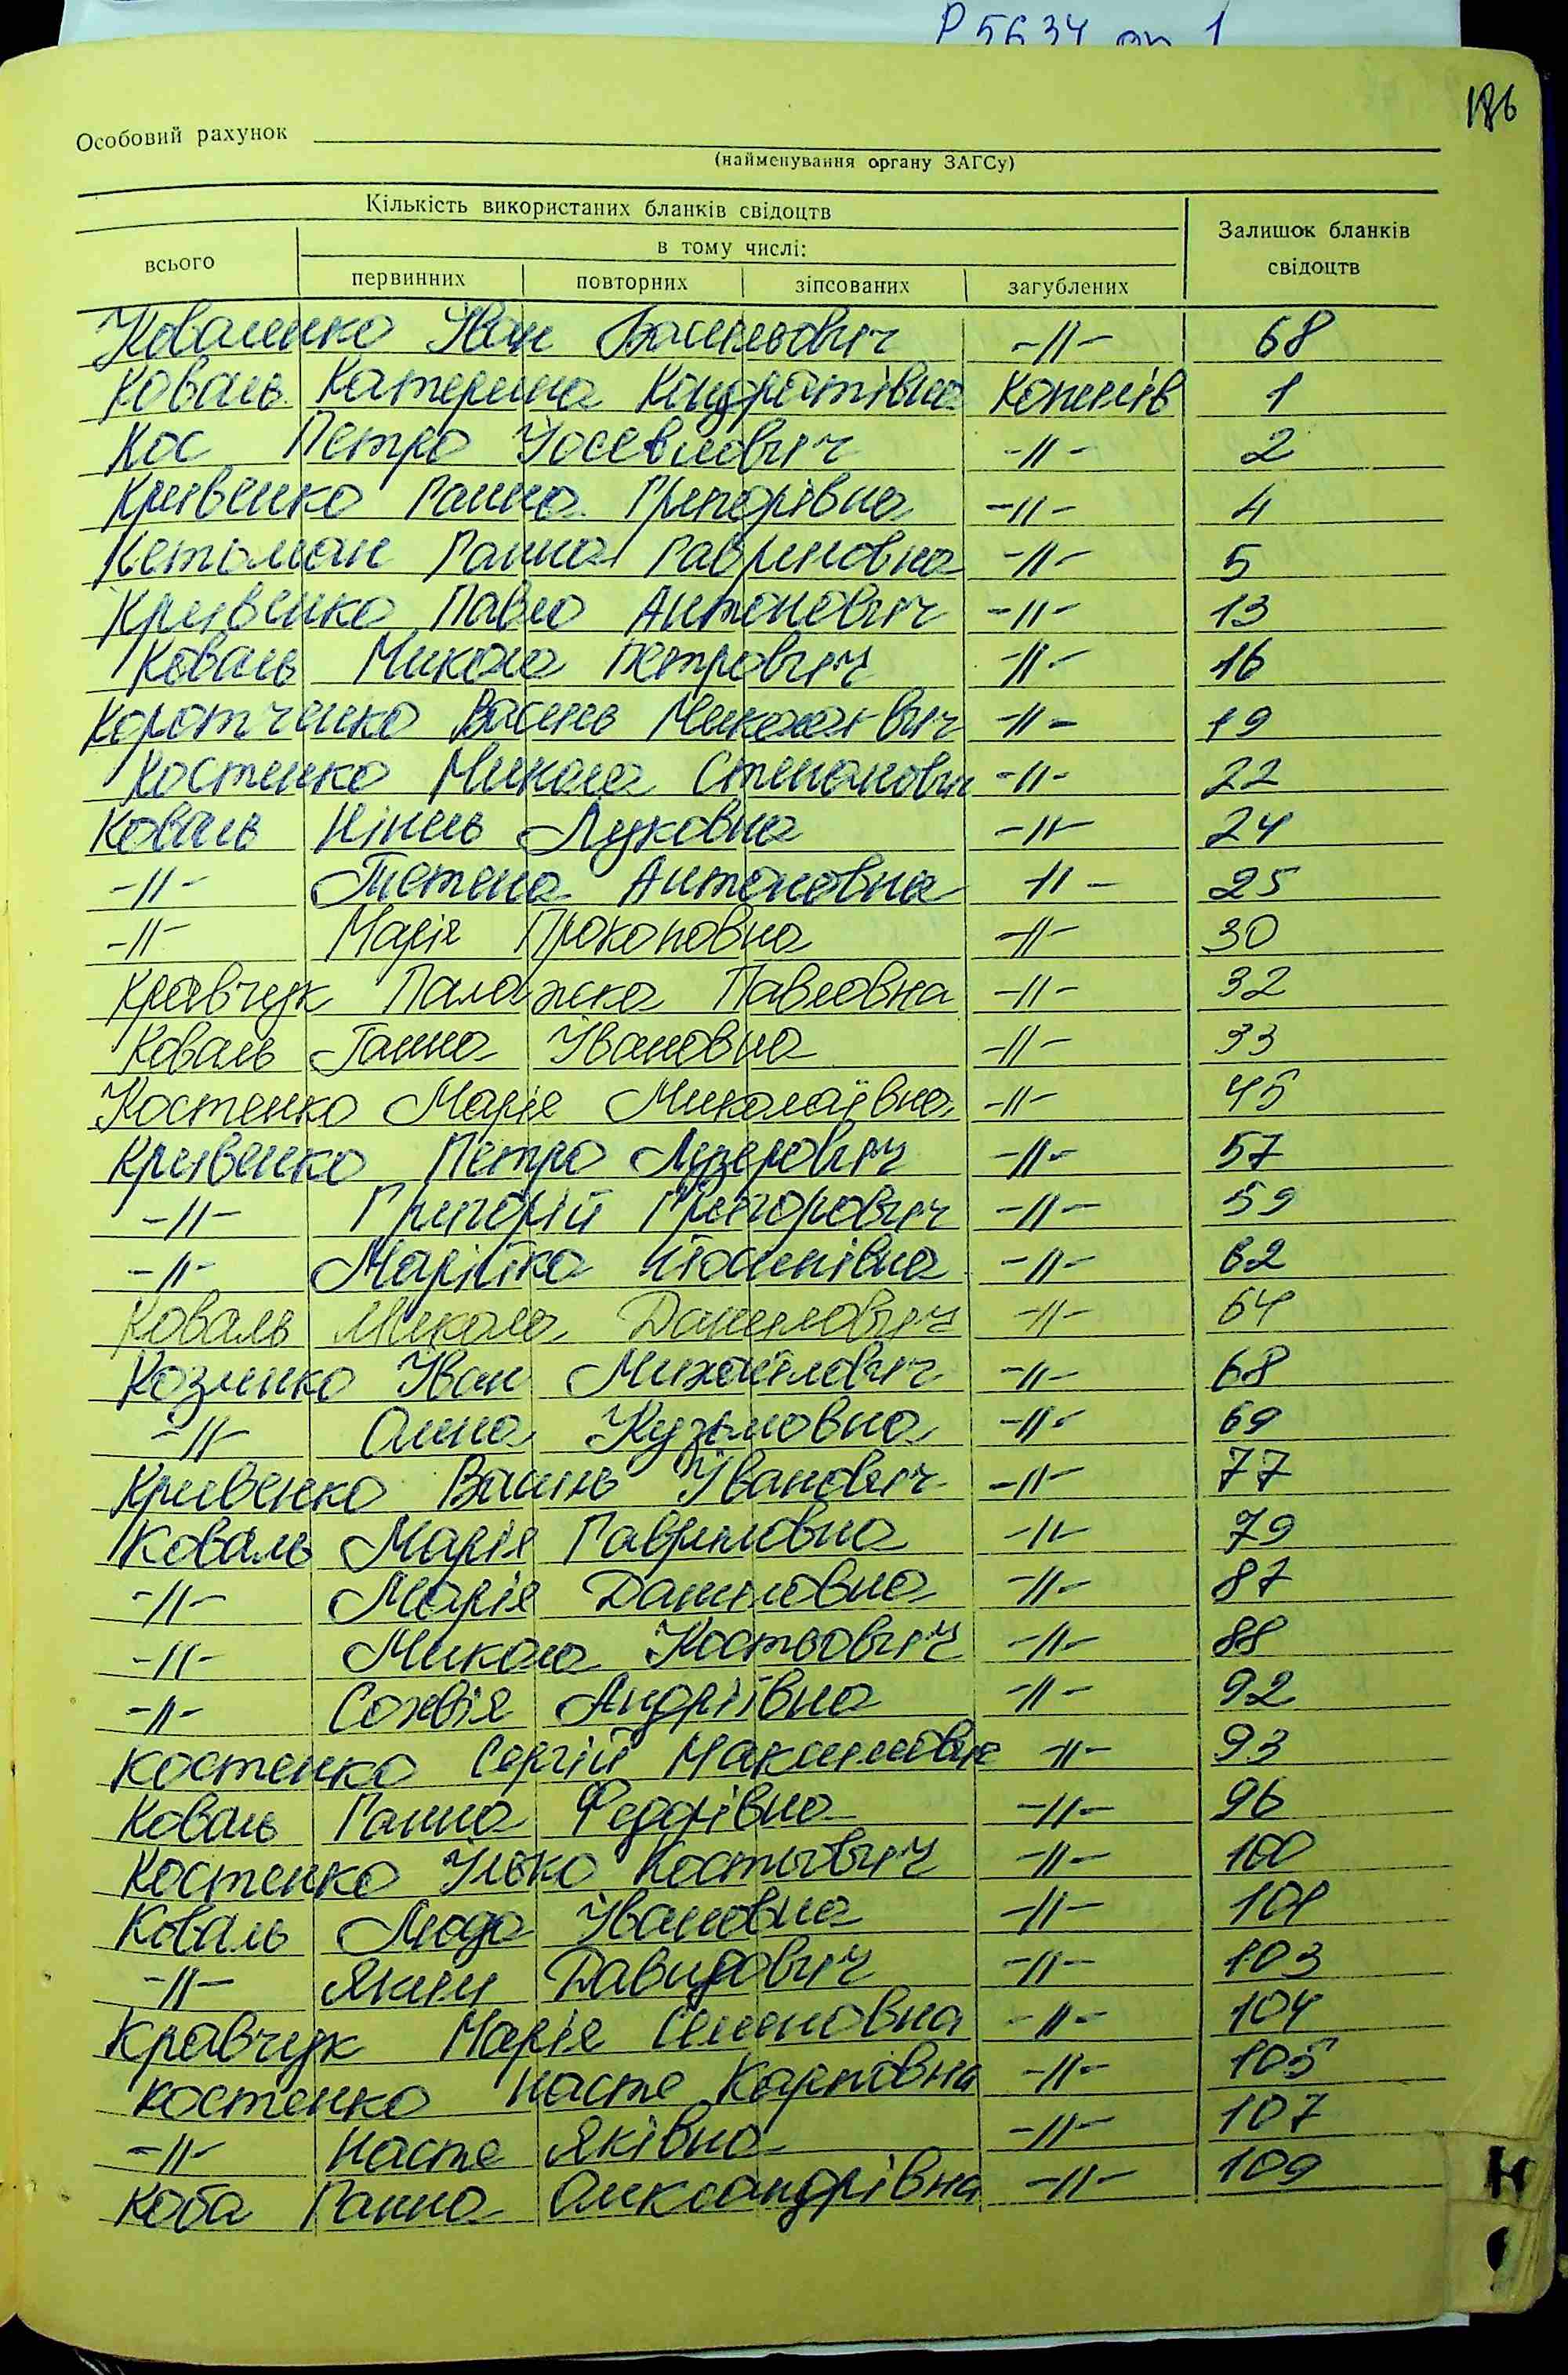 Р 5634 оп 1
186
Особовий рахунок
(найменування органу ЗАГСу)
Кількість використаних бланків свідоцтв
Залишок бланків свідоцтв
всього
в тому числі:
первинних повторних зіпсованих загублених
Коваленко Іван Васильович -//- 68
Коваль Катерина Кондратівна Копачів 1
Кос Петро Йосевлович -//- 2
Кривенко Ганна Григорівна -//- 4
Кетьман Ганна Гавриловна -//- 5
Кривенко Павло Антонович -//- 13
Коваль Микола Петрович -//- 16
Коротченко Василь Миколаєвич -//- 19
Костенко Микола Степанович -//- 22
Коваль Нінель Луковна -//- 24
-//- Тетена Антоновна -//- 25
-//- Марія Прокоповна -//- 30
Кравчук Палажка Павловна -//- 32
Коваль Ганна Івановна -//- 33
Костенко Марія Миколаївна -//- 45
Кривенко Петро Лузерович -//- 57
-//- Григорій Григорович -//- 59
-//- Марійка Йосипівна -//- 62
Коваль Микола Данилович -//- 64
Козленко Іван Михайлович -//- 68
-//- Олина Кузьмовна -//- 69
Кривенко Василь Іванович -//- 77
Коваль Марія Гавриловна -//- 79
-//- Марія Даниловна -//- 87
-//- Микола Костьович -//- 88
-//- Сохвія Андріївна -//- 92
Костенко Сергій Максимович -//- 93
Коваль Ганна Федорівна -//- 96
Костенко Ілько Костьович -//- 100
Коваль Люда Івановна -//- 101
-//- Яким Давидович -//- 103
Кравчук Марія Семеновна -//- 104
Костенко Настя Карповна -//- 105
-//- Настя Яківна -//- 107
Коба Ганна Олександрівна -//- 109
Н